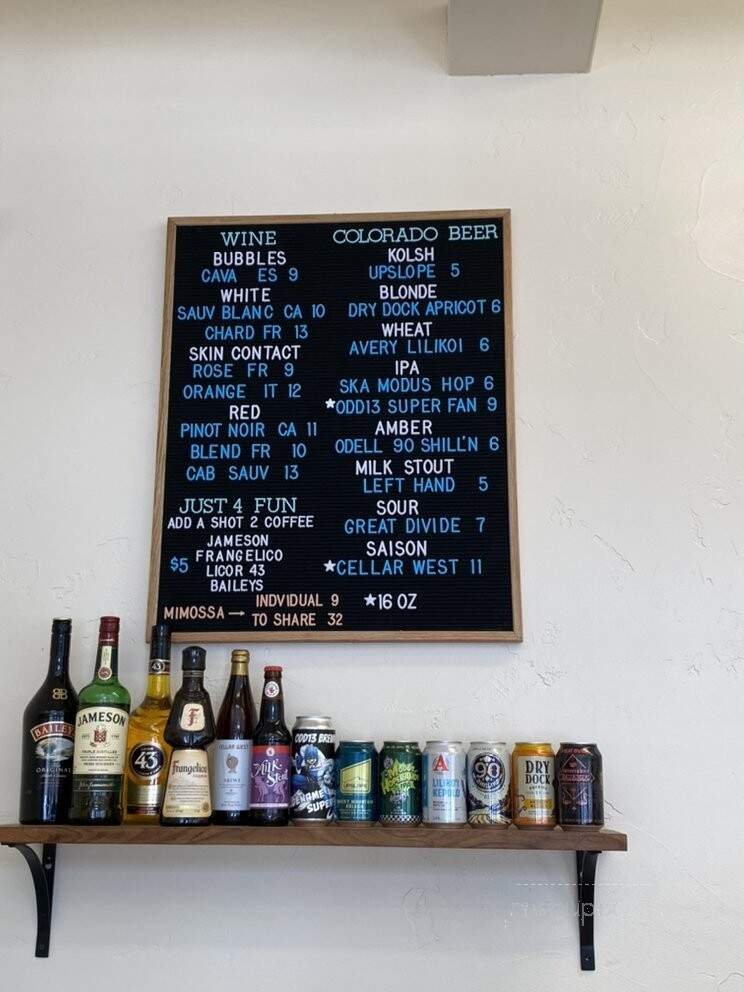 WINE
BUBBLES
CAVA ES 9
WHITE
SAUV BLANC CA 10
CHARD FR 13
SKIN CONTACT
ROSE FR 9
ORANGE IT 12
RED
PINOT NOIR CA 11
BLEND FR 10
CAB SAUV 13
JUST 4 FUN
ADD A SHOT 2 COFFEE
JAMESON
FRANGELICO
$5 LICOR 43
BAILEYS
MIMOSSA → INDVIDUAL 9
TO SHARE 32
COLORADO BEER
KOLSH
UPSLOPE 5
BLONDE
DRY DOCK APRICOT 6
WHEAT
AVERY LILIKOI 6
IPA
SKA MODUS HOP 6
★ODD13 SUPER FAN 9
AMBER
ODELL 90 SHILL'N 6
MILK STOUT
LEFT HAND 5
SOUR
GREAT DIVIDE 7
SAISON
★CELLAR WEST 11
★16 OZ
BAILEYS
ORIGINAL
JAMESON
TRIPLE DISTILLED
43
43
F
Frangelico
CELLAR WEST
Milk
Stout
ODD13 BREW
UPSLOPE
A
LILIKO'I
KEPOLO
90
DRY
DOCK